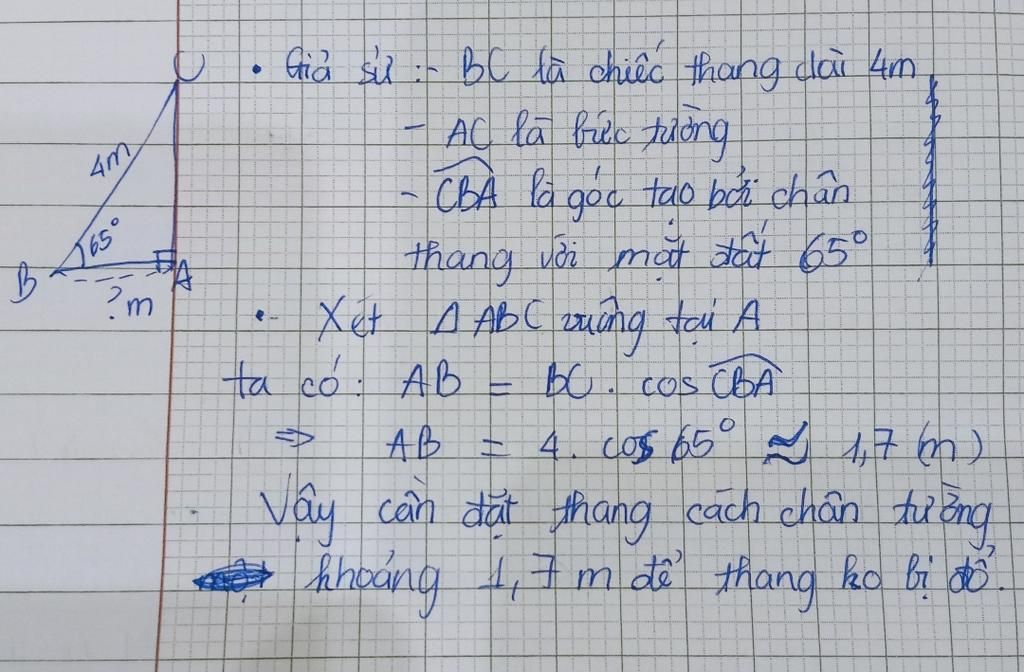 C
4m
65°
B
A
?m
• Giả sử :- BC là chiếc thang dài 4m
- AC là bức tường
- CBA là góc tạo bởi chân
thang với mặt đất 65°
• Xét Δ ABC vuông tại A
ta có: AB = BC. cos CBA
⇒ AB = 4. cos 65° ≈ 1,7 (m)
Vậy cần đặt thang cách chân tường
khoảng 1,7 m để thang ko bị đổ.